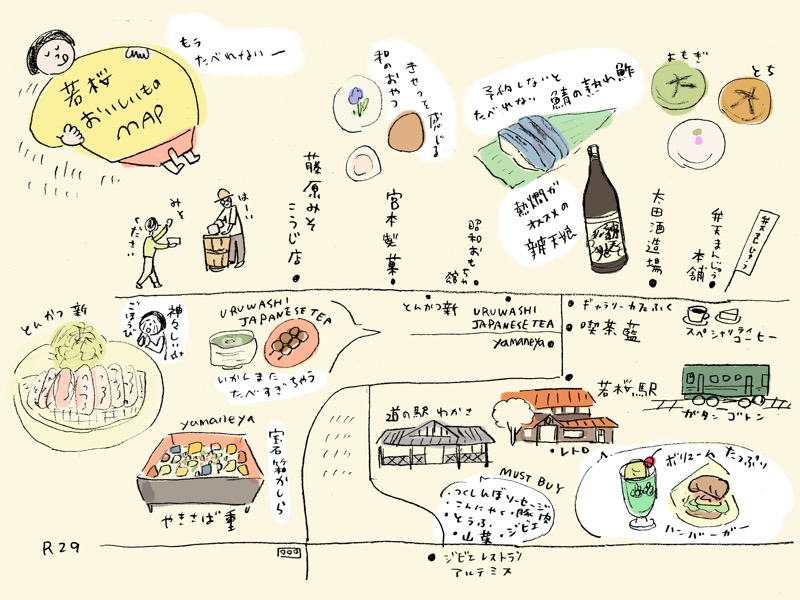 若桜
おいしいもの
MAP
もう
たべれないー
きゅっと感じる
和のおやつ
予約しないと
たべれない
鯖の熟れ鮓
よもぎ
とち
みそ
ください
はーい
藤原みそ
こうじ店
宮本製菓
昭和おもちゃ館
熱燗が
オススメの
辨天娘
太田酒造場
弁天まんじゅう
本舗
弁天まんじゅう
とんかつ新
神々しい
ごほうび
URUWASHI
JAPANESE TEA
いかんまた
たべすぎちゃう
とんかつ新
URUWASHI
JAPANESE TEA
yamaneya
ギャラリーカフェふく
喫茶藍
スペシャリティ
コーヒー
若桜駅
ガタンゴトン
yamaneya
宝石箱かしら
やきさば重
道の駅 わかさ
レトロ
MUST BUY
・つくしんぼソーセージ
・こんにゃく・豚肉
・とうふ
・ジビエ
・山葉
ボリュームたっぷり
ハンバーガー
R29
ジビエレストラン
アルテミス